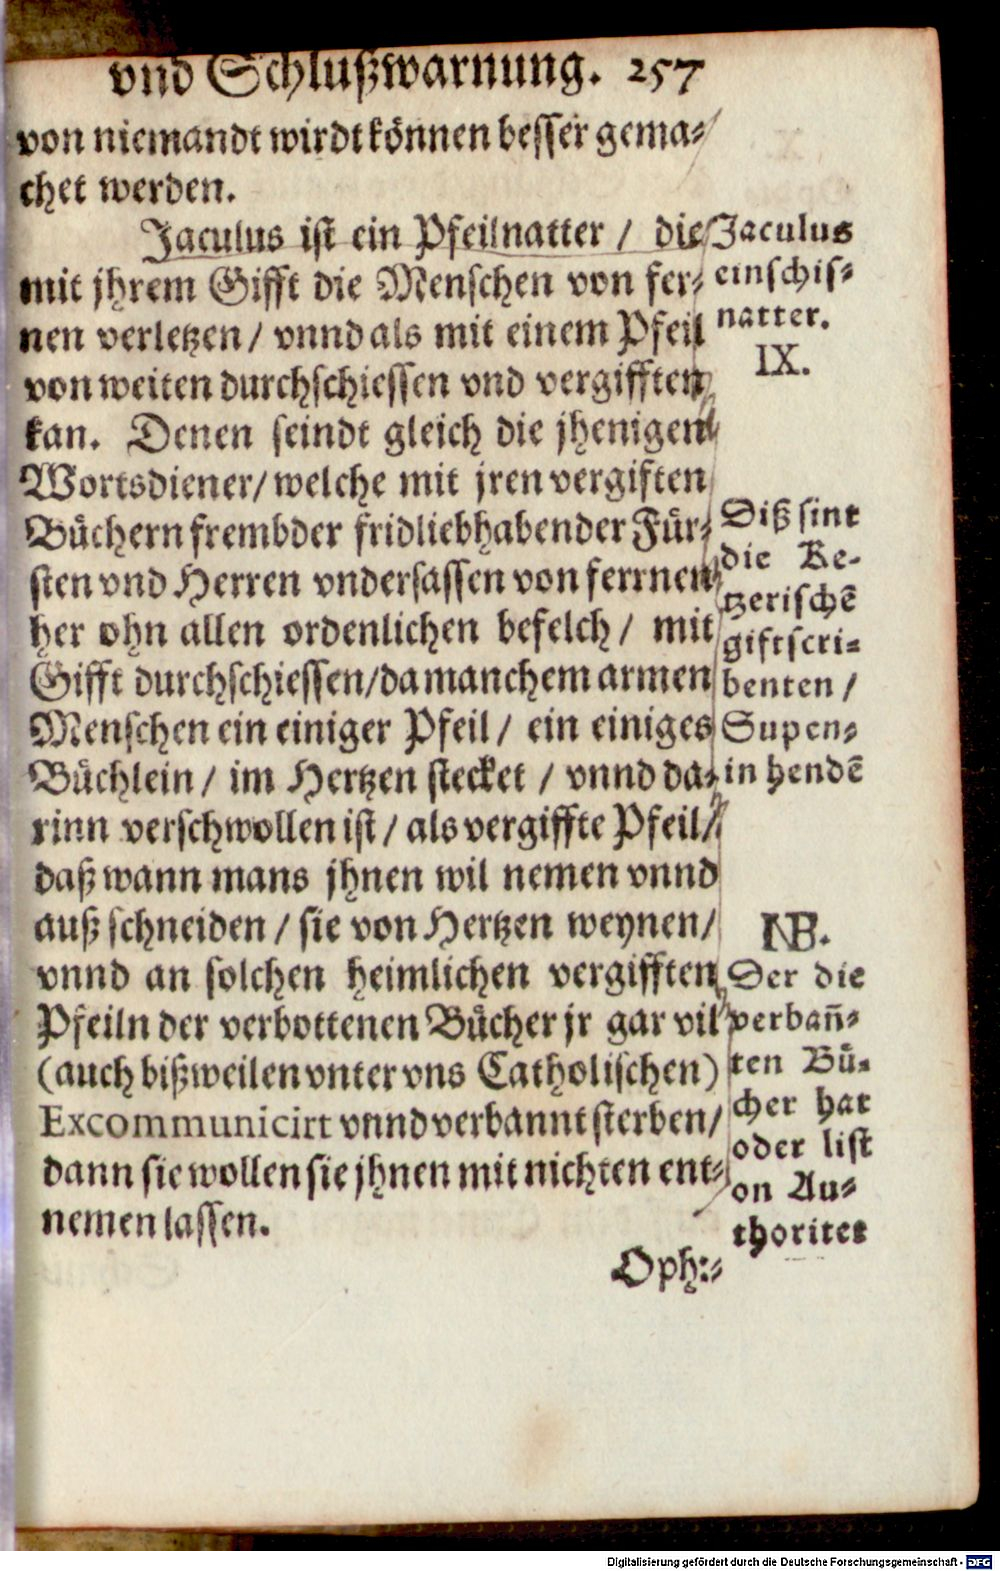 vnd Schlußwarnung. 257
von niemandt wirdt können besser gema⸗
chet werden.
Jaculus ist ein Pfeilnatter / die
mit jhrem Gifft die Menschen von fer⸗
nen verletzen / vnnd als mit einem Pfeil
von weiten durchschiessen vnd vergifften
kan. Denen seindt gleich die jhenigen
Wortsdiener / welche mit jren vergiften
Büchern frembder fridliebhabender Für⸗
sten vnd Herren vndersassen von ferrnen
her ohn allen ordenlichen befelch / mit
Gifft durchschiessen / da manchem armen
Menschen ein einiger Pfeil / ein einiges
Büchlein / im Hertzen stecket / vnnd da⸗
rinn verschwollen ist / als vergiffte Pfeil /
daß wann mans jhnen wil nemen vnnd
auß schneiden / sie von Hertzen weynen /
vnnd an solchen heimlichen vergifften
Pfeiln der verbottenen Bücher jr gar vil
(auch bißweilen vnter vns Catholischen)
Excommunicirt vnnd verbannt sterben /
dann sie wollen sie jhnen mit nichten ent⸗
nemen lassen.
Oph:⸗
Jaculus
einschis⸗
natter.
IX.
Diß sint
die Ke⸗
tzerischē
giftscri⸗
benten /
Supen⸗
in hendē
NB.
Der die
verbañ⸗
ten Bü⸗
cher hat
oder list
on Au⸗
thoritet
Digitalisierung gefördert durch die Deutsche Forschungsgemeinschaft - DFG